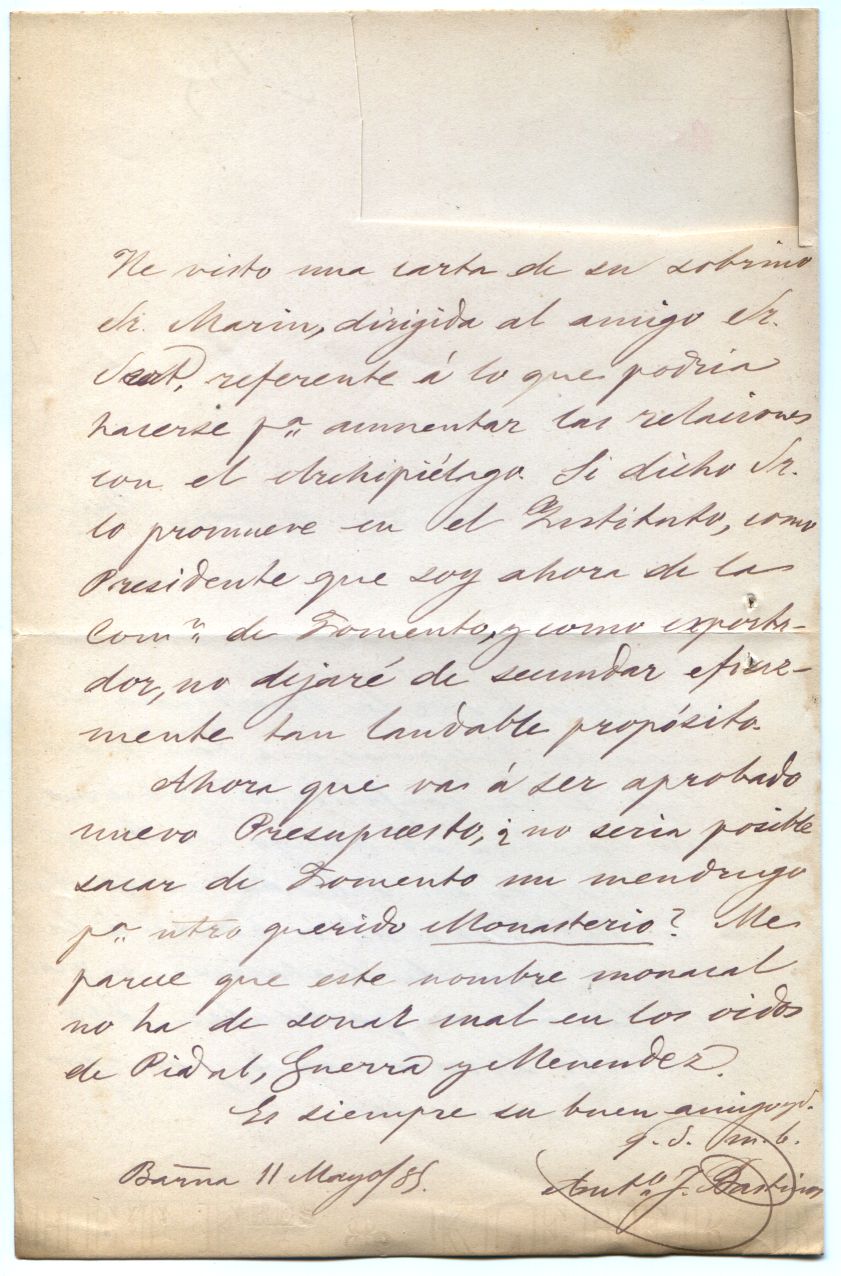 He visto una carta de su sobrino
Sr. Marin, dirigida al amigo Sr.
Sert, referente á lo que podria
hacerse pª aumentar las relaciones
con el Archipiélago. Si dicho Sr.
lo promueve en el Instituto, como
Presidente que soy ahora de la
Comⁿ de Fomento, y como exporta-
dor, no dejaré de secundar eficaz-
mente tan laudable propósito.
Ahora que vá á ser aprobado
nuevo Presupuesto, ¿no seria posible
sacar de Fomento un mendrugo
pª ntro querido Monasterio? Me
parece que este nombre monacal
no ha de sonar mal en los oidos
de Pidal, Guerra y Menendez.
Es siempre su buen amigo
q. s. m. b.
Barna 11 Mayo/85. Antº J. Bastinos